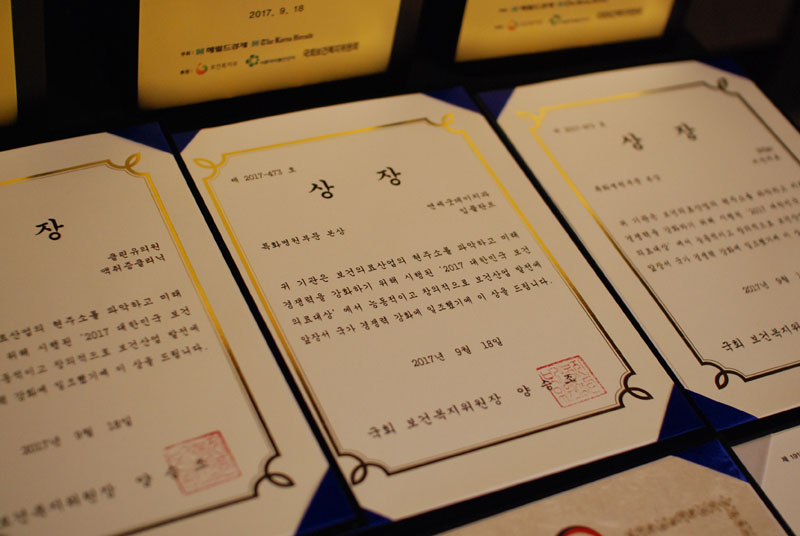 2017. 9. 18
헤럴드경제 The Korea Herald
국회보건복지위원회
장
맥위증클리닉
료산업의 현주소를 파악하고 미래
위해 시행된 '2017 대한민국 보건
동적이고 창의적으로 보건산업 발전에
력 강화에 일조했기에 이 상을 드립니다.
2017년 9월 18일
보건복지위원장 양승조
제 2017-473 호
상장
연세군데이치과
임플란트
특화병원부문 본상
위 기관은 보건의료산업의 현주소를 파악하고 미래
경쟁력을 강화하기 위해 시행된 '2017 대한민국 보건
의료대상' 에서 능동적이고 창의적으로 보건산업 발전에
앞장서 국가 경쟁력 강화에 일조했기에 이 상을 드립니다.
2017년 9월 18일
국회 보건복지위원장 양승조
상장
특화병원부문 본상
위 기관은 보건의료산업의 현주소를 파악하고
경쟁력을 강화하기 위해 시행된 '2017
의료대상' 에서 능동적이고 창의적으로 보건산업
앞장서 국가 경쟁력 강화에 일조했기에 이
2017년 9월
국회 보건복지위원장